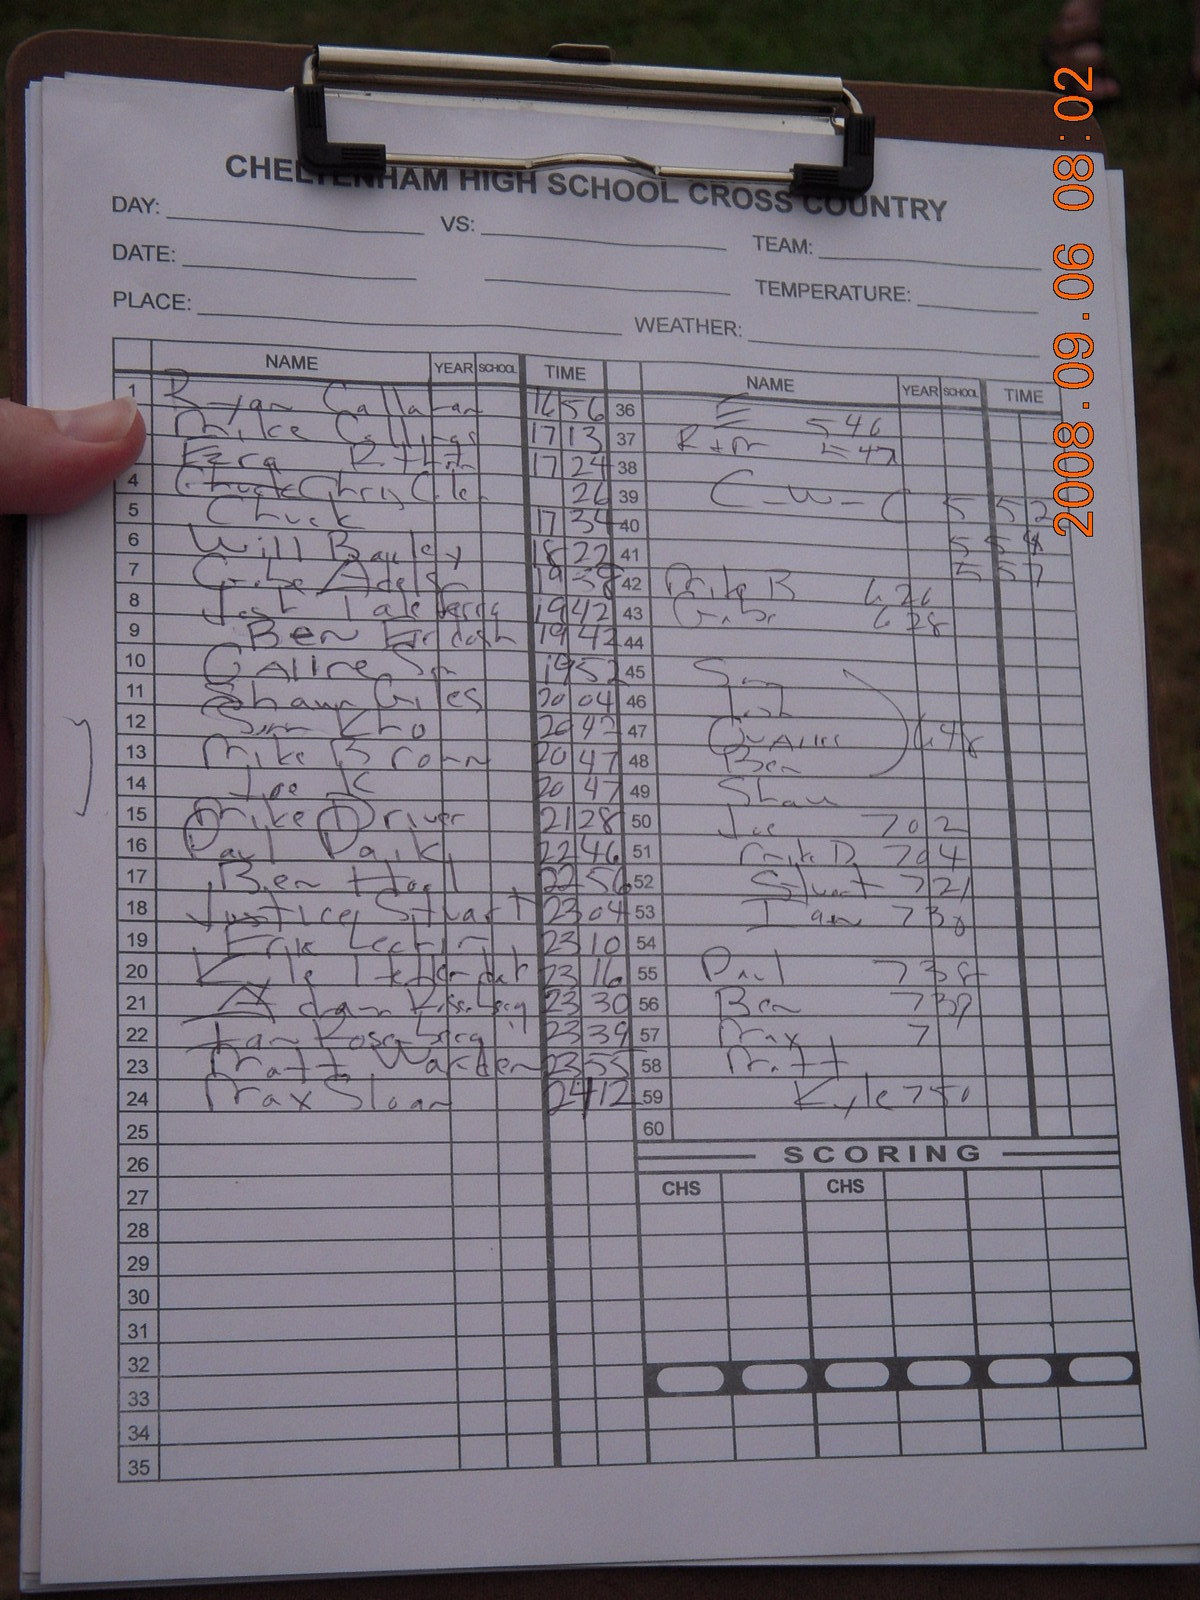 CHELTENHAM HIGH SCHOOL CROSS COUNTRY
DAY: VS: TEAM:
DATE: TEMPERATURE:
PLACE: WEATHER:
NAME YEAR SCHOOL TIME
1 Ryan Callahan 16 56
Mike Collins 17 13
Ezra 17 24
4 Chris 26
5 Chuck 17 34
6 Will Bagley 18 22
7 Gabe 19 38
8 Josh 19 42
9 Ben 19 42
10 19 52
11 Shawn Giles 20 04
12 Kho 20 42
13 Mike Brown 20 47
14 Joe K 20 47
15 Mike Driver 21 28
16 Paul Paik 22 46
17 Ben 22 56
18 Justice Stuart 23 04
19 Erik 23 10
20 Kyle 23 16
21 Adam 23 30
22 Ian Rosenberg 23 39
23 Matt Warden 23 55
24 Max Sloan 24 12
25
26
27
28
29
30
31
32
33
34
35
NAME YEAR SCHOOL TIME
36 E 546
37 R+M 547
38
39 C-W-C 5 52
40
41 5 57
42 Mike B 626
43 Gabe 628
44
45
46 Josh
47 648
48 Ben
49 Shaw
50 Joe 702
51 Mike D 704
52 Stuart 721
53 Ian 738
54
55 Paul 738
56 Ben 739
57 Max 7
58 Matt
59 Kyle 750
60
SCORING
CHS CHS
2008.09.06 08:02